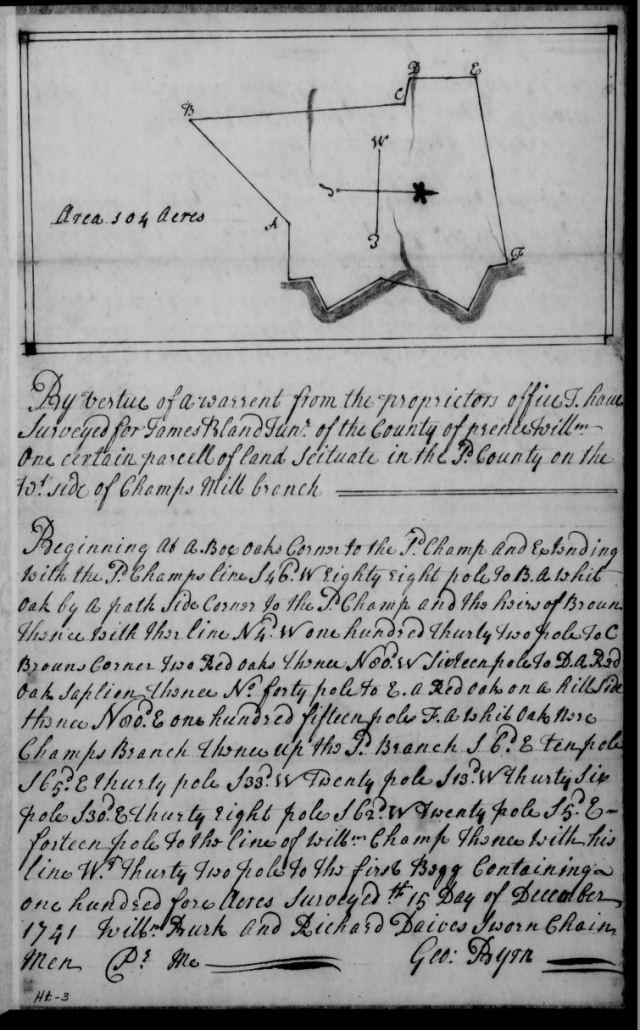 D E
C
B
W
S
Area 104 Acres
A
E
F
By vertue of a warrent from the proprietors office I have
Surveyed for James Bland Junr. of the County of prence Willm
One certain parcell of land Scituate in the Sd. County on the
Wt side of Champs Mill branch
Beginning At A Box Oaks Corner to the Sd. Champ And Extending
with the Sd. Champs line S46d. W Eighty Eight pole to B. A whit
Oak by A path Side Corner to the Sd. Champ and the heirs of Broun
thence with ther line N4d. W one hundred thurty two pole to C
Brouns Corner two Red Oaks thence N80d. W Sixteen pole to D. A Red
Oak Saplien thence No. forty pole to E. A Red Oak on a hill Side
thence N80d. E one hundred fifteen poles F. A whit Oak Nere
Champs Branch thence up the Sd. Branch S 6d. E ten pole
S65d. E thurty pole S33d. W Twenty pole S13d. W Thurty Six
pole S30d. E thurty Eight pole S62d. W Twenty pole S5d. E
forteen pole to the line of Willm Champ thence with his
line Wt. Thurty two pole to the first Begg Containing
one hundred fore Acres Surveyed th 15 Day of December
1741 Willm Burk And Richard Daives Sworn Chain
Men Pr. Me Geo: Byrn
Ht-3